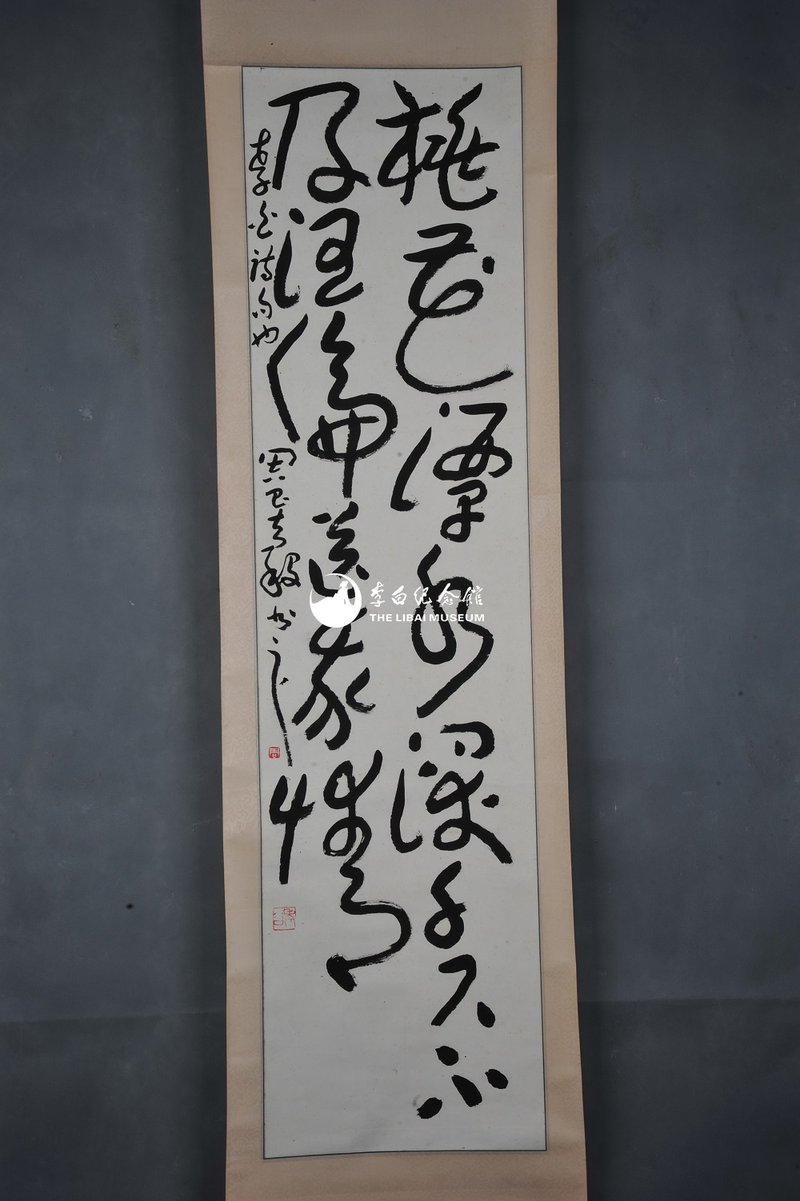 桃花潭水深千尺不
及汪倫送我情
李白詩句也
李白纪念馆
THE LIBAI MUSEUM